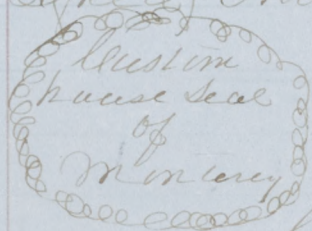 Custom
house Seal
of
Monterey